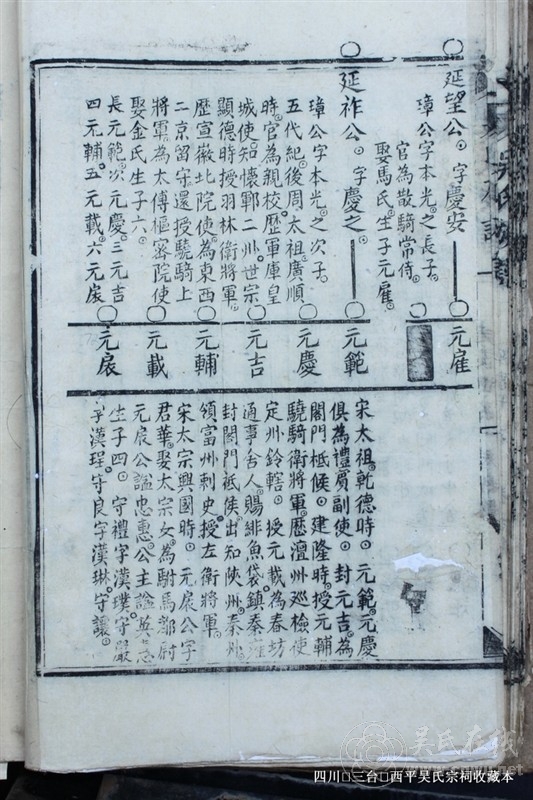 延望公。字慶安
璋公字本光。之長子。
官為散騎常侍。
娶馬氏。生子元雇。
延祚公。字慶之。
璋公字本光。之次子。
五代紀。後周太祖廣順
時。官為親校。歷軍庫皇
城使。知懷鄆二州。世宗
顯德時。授羽林衛將軍。
歷宣徽北院使。為東西
二京留守。還授驍騎上
將軍。為太傅樞密院使
娶金氏。生子六。
長元範。次元慶。三元吉
四元輔。五元載。六元扆
元雇
元範
元慶
元吉
元輔
元載
元扆
宋太祖。乾德時。元範。元慶
俱為禮賓副使。封元吉。為
閣門柢候。建隆時。授元輔
驍騎衛將軍。歷澶州巡檢使
定州鈴轄。授元載為春坊
通事舍人。賜緋魚袋。鎮秦
封閣門祗候。出知陝州。秦州
領富州刺史。授左衛將軍。
宋太宗興國時。元扆公字
君華。娶太宗女。為駙馬都尉
元扆公謚忠惠。公主謚英惠
生子四。守禮字漢璞。守嚴
字漢珵。守良字漢琳。守讓。
吴氏在线
四川三台西平吴氏宗祠收藏本